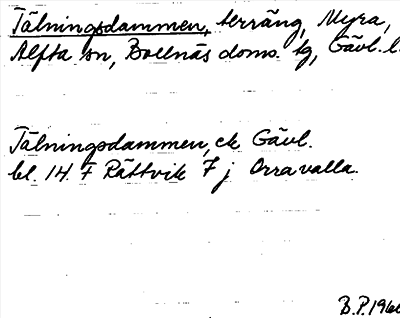 Tälningsdammen, terräng, Myra,
Alfta sn, Bollnäs doms. tg, Gävl. l.
Tälningsdammen, ek Gävl.
bl. 14 F Rättvik 7 j Orravalla.
B.P. 196